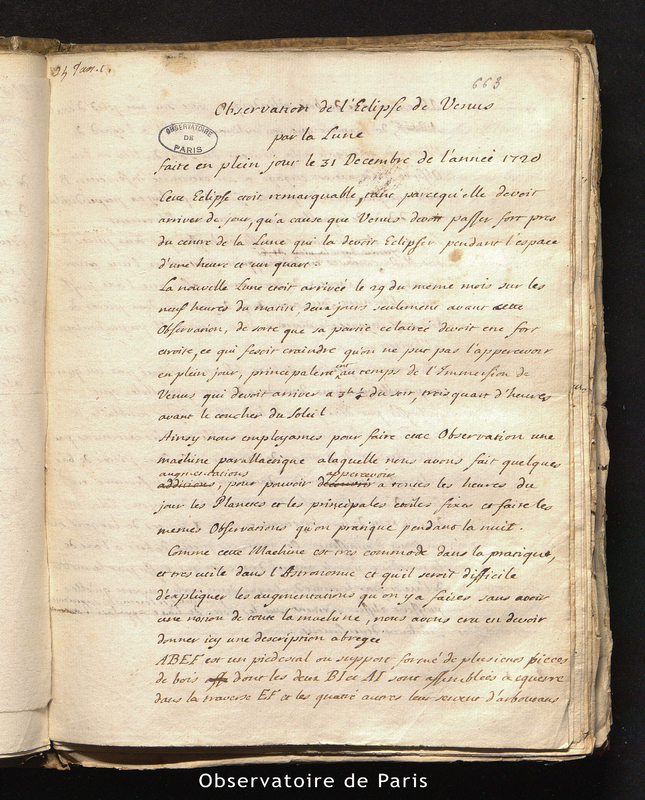 24 Janv.
663
Observation de l'Eclipse de Venus
par la Lune
OBSERVATOIRE
DE
PARIS
faite en plein jour le 31 Decembre de l'année 1720
Cette Eclipse etoit remarquable, tant parcequ'elle devoit
arriver de jour, qu'a cause que Venus devoit passer fort pres
du centre de la Lune qui la devoit Eclipser pendant l'espace
d'une heure et un quart.
La nouvelle Lune etoit arrivée le 29 du meme mois sur les
neuf heures du matin, deux jours seulement avant cette
Observation, de sorte que sa partie eclairée devoit etre fort
etroite, ce qui fesoit craindre qu'on ne put pas l'appercevoir
en plein jour, principalement au temps de l'Immersion de
Venus qui devoit arriver a 3h ¼ du soir, trois quart d'heures
avant le coucher du Soleil
Ainsy nous employames pour faire cette Observation une
machine parallactique a laquelle nous avons fait quelques
augmentations appercevoir
additions, pour pouvoir decouvrir a toutes les heures du
jour les Planetes et les principales etoiles fixes et faire les
memes Observations qu'on pratique pendant la nuit.
Comme cette Machine est tres commode dans la pratique,
et tres utile dans l'Astronomie et qu'il seroit difficile
d'expliquer les augmentations qu'on y a faites sans avoir
une notion de toute la machine, nous avons cru en devoir
donner icy une description abregée
ABEF est un piedestal ou support formé de plusieurs pieces
de bois dont les deux BI et AI sont assemblées a equerre
dans la traverse EF et les quatre autres leur servent d'arboutans
Observatoire de Paris